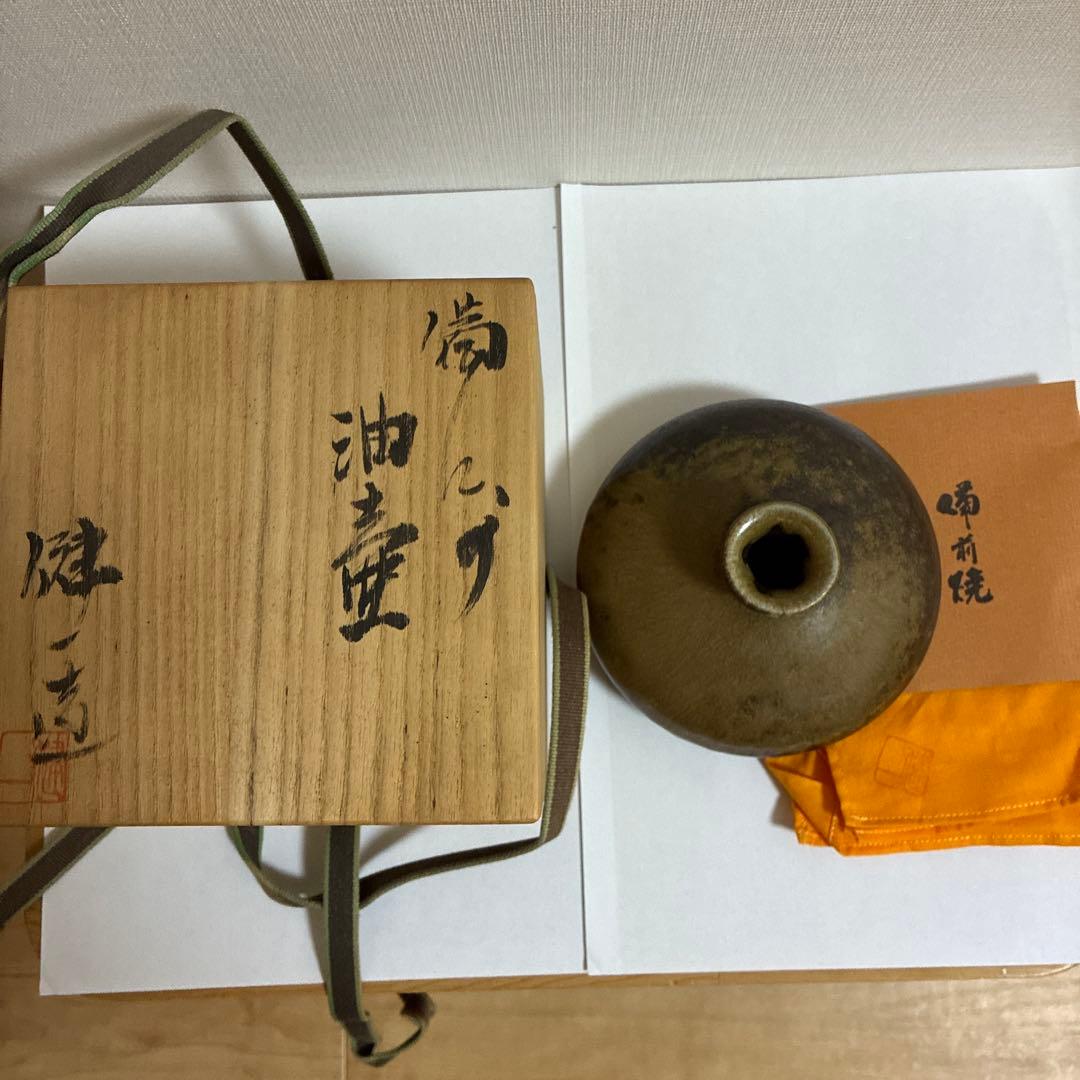 備前
油壷
健一造
備前焼